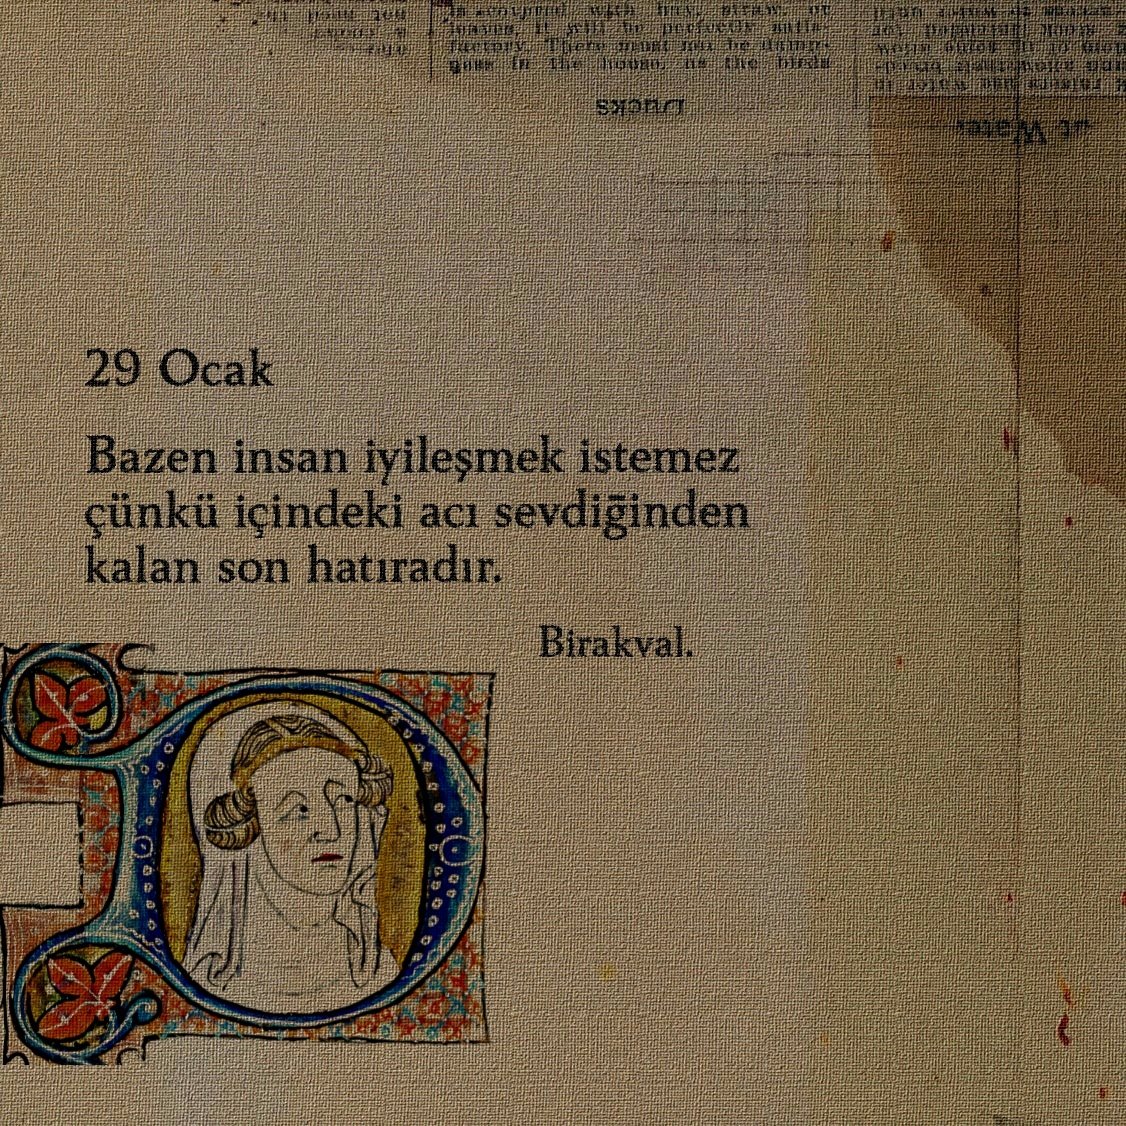 leaves, it will be perfectly satis-
factory. There must not be damp-
ness in the house, as the birds
Ducks
at Water
29 Ocak
Bazen insan iyileşmek istemez
çünkü içindeki acı sevdiğinden
kalan son hatıradır.
Birakval.